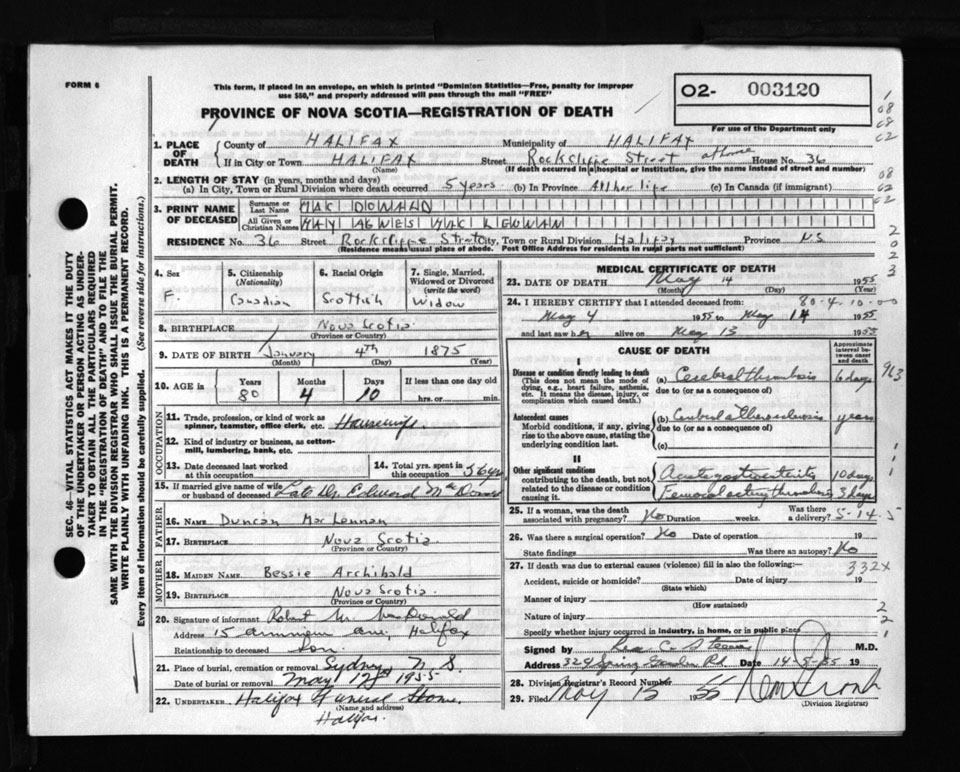 FORM 6
This form, if placed in an envelope, on which is printed "Dominion Statistics—Free, penalty for improper
use $50," and properly addressed will pass through the mail "FREE"
PROVINCE OF NOVA SCOTIA—REGISTRATION OF DEATH
02- 003120
For use of the Department only
1. PLACE OF DEATH
County of HALIFAX Municipality of HALIFAX
If in City or Town HALIFAX Street Rockcliffe Street at home House No. 36
(Name) (If death occurred in a hospital or institution, give the name instead of street and number)
2. LENGTH OF STAY (in years, months and days)
(a) In City, Town or Rural Division where death occurred 5 years (b) In Province All her life (c) In Canada (if immigrant)
3. PRINT NAME OF DECEASED
Surname or Last Name MAC DONALD
All Given or Christian Names MAY AGNES MAC LENNAN
RESIDENCE No. 36 Street Rockcliffe Street City, Town or Rural Division Halifax Province N.S
(Residence means usual place of abode. Post Office Address for residents in rural parts not sufficient)
SEC. 46—VITAL STATISTICS ACT MAKES IT THE DUTY
OF THE UNDERTAKER OR PERSON ACTING AS UNDER-
TAKER TO OBTAIN ALL THE PARTICULARS REQUIRED
IN THE "REGISTRATION OF DEATH" AND TO FILE THE
SAME WITH THE DIVISION REGISTRAR WHO SHALL ISSUE THE BURIAL PERMIT.
WRITE PLAINLY WITH UNFADING INK. THIS IS A PERMANENT RECORD.
Every item of information should be carefully supplied. (See reverse side for instructions.)
4. Sex F.
5. Citizenship (Nationality) Canadian
6. Racial Origin Scottish
7. Single, Married, Widowed or Divorced (write the word) Widow
8. BIRTHPLACE Nova Scotia
(Province or Country)
9. DATE OF BIRTH January 4th 1875
(Month) (Day) (Year)
10. AGE IN Years 80 Months 4 Days 10 If less than one day old hrs. or min.
OCCUPATION
11. Trade, profession, or kind of work as
spinner, teamster, office clerk, etc. Housewife
12. Kind of industry or business, as cotton-
mill, lumbering, bank, etc.
13. Date deceased last worked
at this occupation
14. Total yrs. spent in
this occupation 56 yr
15. If married give name of wife
or husband of deceased Late Dr Edward MacDonald
FATHER
16. NAME Duncan MacLennan
17. BIRTHPLACE Nova Scotia
(Province or Country)
MOTHER
18. MAIDEN NAME Bessie Archibald
19. BIRTHPLACE Nova Scotia
(Province or Country)
20. Signature of informant Robert M. MacDonald
Address 15 ave, Halifax
Relationship to deceased son
21. Place of burial, cremation or removal Sydney N.S.
Date of burial or removal May 1955
22. UNDERTAKER Halifax Funeral Home
(Name and address)
Halifax
MEDICAL CERTIFICATE OF DEATH
23. DATE OF DEATH May 14 1955
(Month) (Day) (Year)
24. I HEREBY CERTIFY that I attended deceased from: 80-4-10-00
May 4 1955 to May 14 1955
and last saw her alive on May 13 1955
CAUSE OF DEATH
Approximate interval between onset and death
I
Disease or condition directly leading to death
(This does not mean the mode of dying, e.g., heart failure, asthenia, etc. It means the disease, injury, or complication which caused death.)
(a) Cerebral thrombosis 6 days
due to (or as a consequence of)
963
Antecedent causes
Morbid conditions, if any, giving rise to the above cause, stating the underlying condition last.
(b) Cerebral atherosclerosis years
due to (or as a consequence of)
(c)
II
Other significant conditions
contributing to the death, but not related to the disease or condition causing it.
Acute gastroenteritis 10 days
Femoral artery thrombosis 3 days
25. If a woman, was the death
associated with pregnancy? No Duration weeks. Was there a delivery? 5-14-5
26. Was there a surgical operation? No Date of operation 19
State findings Was there an autopsy? No
27. If death was due to external causes (violence) fill in also the following:—
332X
Accident, suicide or homicide? Date of injury 19
(State which)
Manner of injury
(How sustained)
Nature of injury
Specify whether injury occurred in industry, in home, or in public place
Signed by M.D.
Address 329 Spring Garden Rd. Date 14-5-55 19
28. Division Registrar's Record Number
29. Filed May 1955
(Division Registrar)